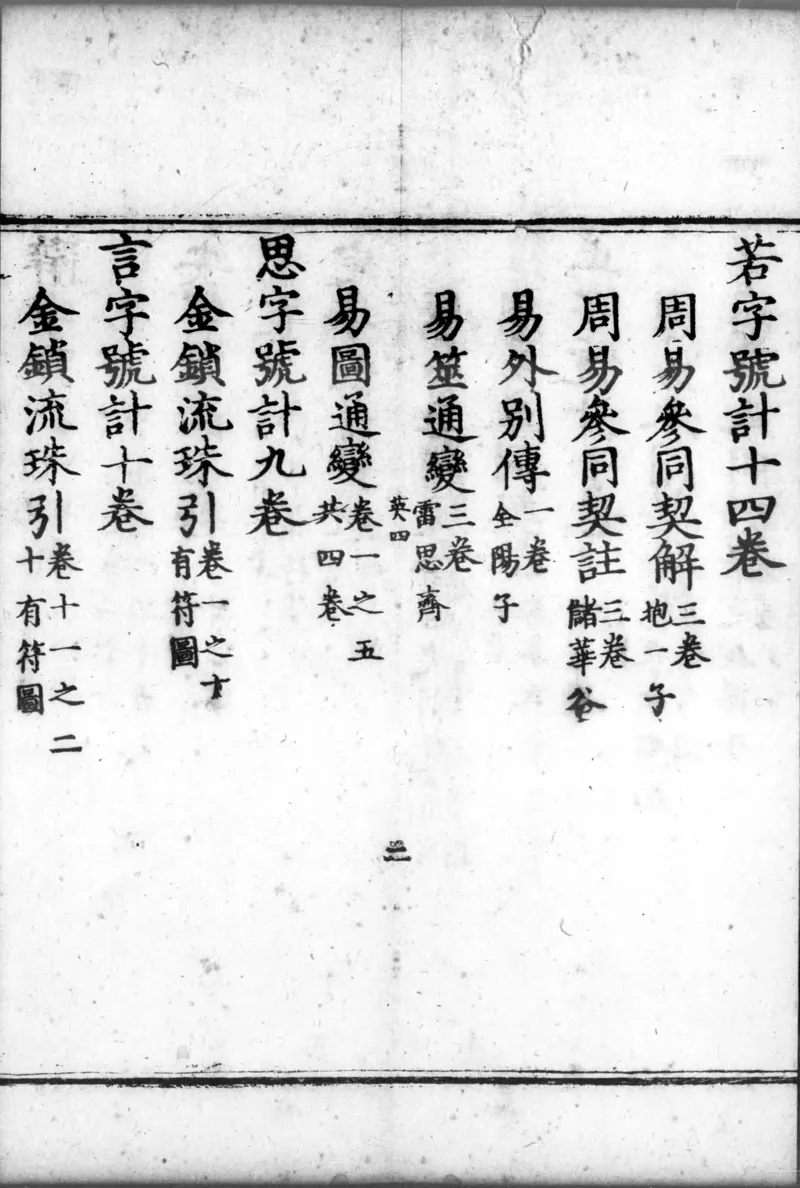 若字號計十四卷
周易參同契解三卷抱一子
周易參同契註三卷儲華谷
易外別傳一卷全陽子
易筮通變三卷雷思齊
英四
二
易圖通變卷一之五共四卷
思字號計九卷
金鎖流珠引卷一之十有符圖
言字號計十卷
金鎖流珠引卷十一之二十有符圖